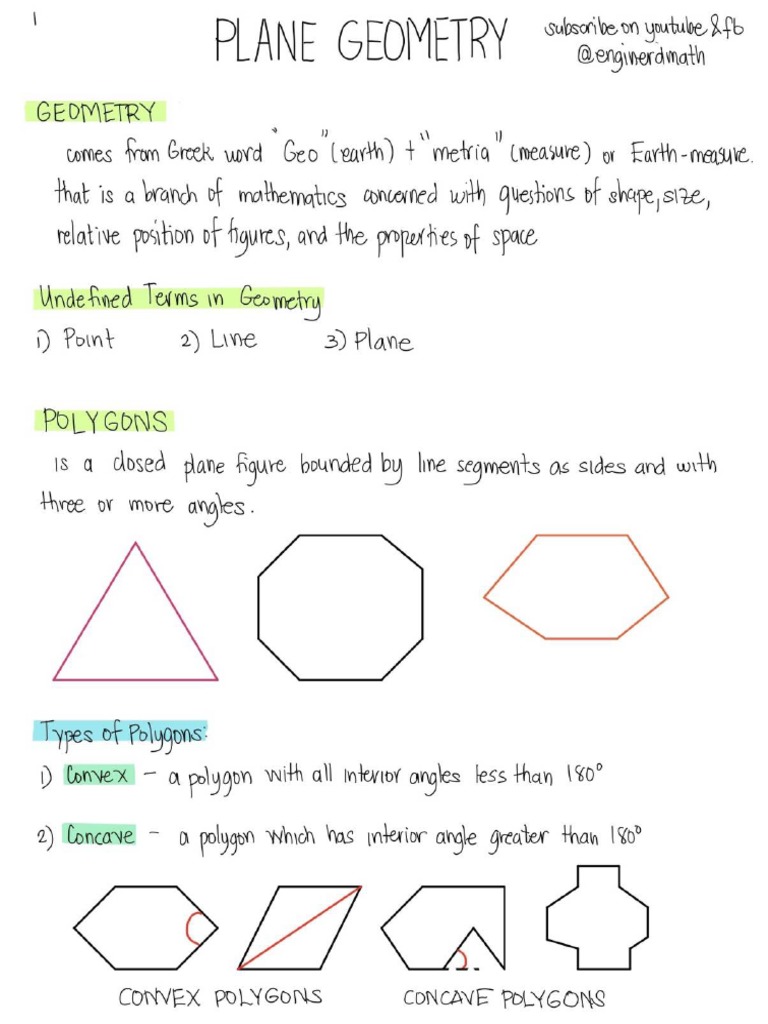 1
PLANE GEOMETRY
subscribe on youtube & fb
@enginerdmath
GEOMETRY
comes from Greek word "Geo" (earth) + "metria" (measure) or Earth-measure.
that is a branch of mathematics concerned with questions of shape, size,
relative position of figures, and the properties of space
Undefined Terms in Geometry
1) Point 2) Line 3) Plane
POLYGONS
is a closed plane figure bounded by line segments as sides and with
three or more angles.
Types of Polygons:
1) Convex - a polygon with all interior angles less than 180°
2) Concave - a polygon which has interior angle greater than 180°
CONVEX POLYGONS CONCAVE POLYGONS